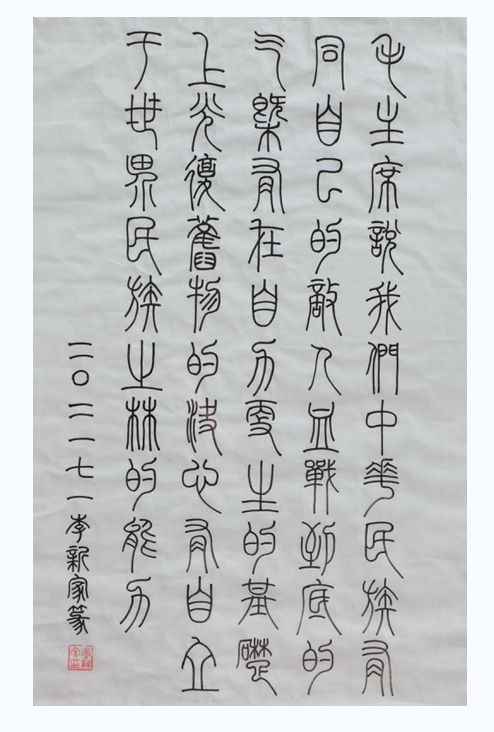 毛主席說我們中華民族有
同自己的敵人血戰到底的
气槩有在自力更生的基礎
上光復舊物的決心有自立
于世界民族之林的能力
二〇二一七一李新家篆